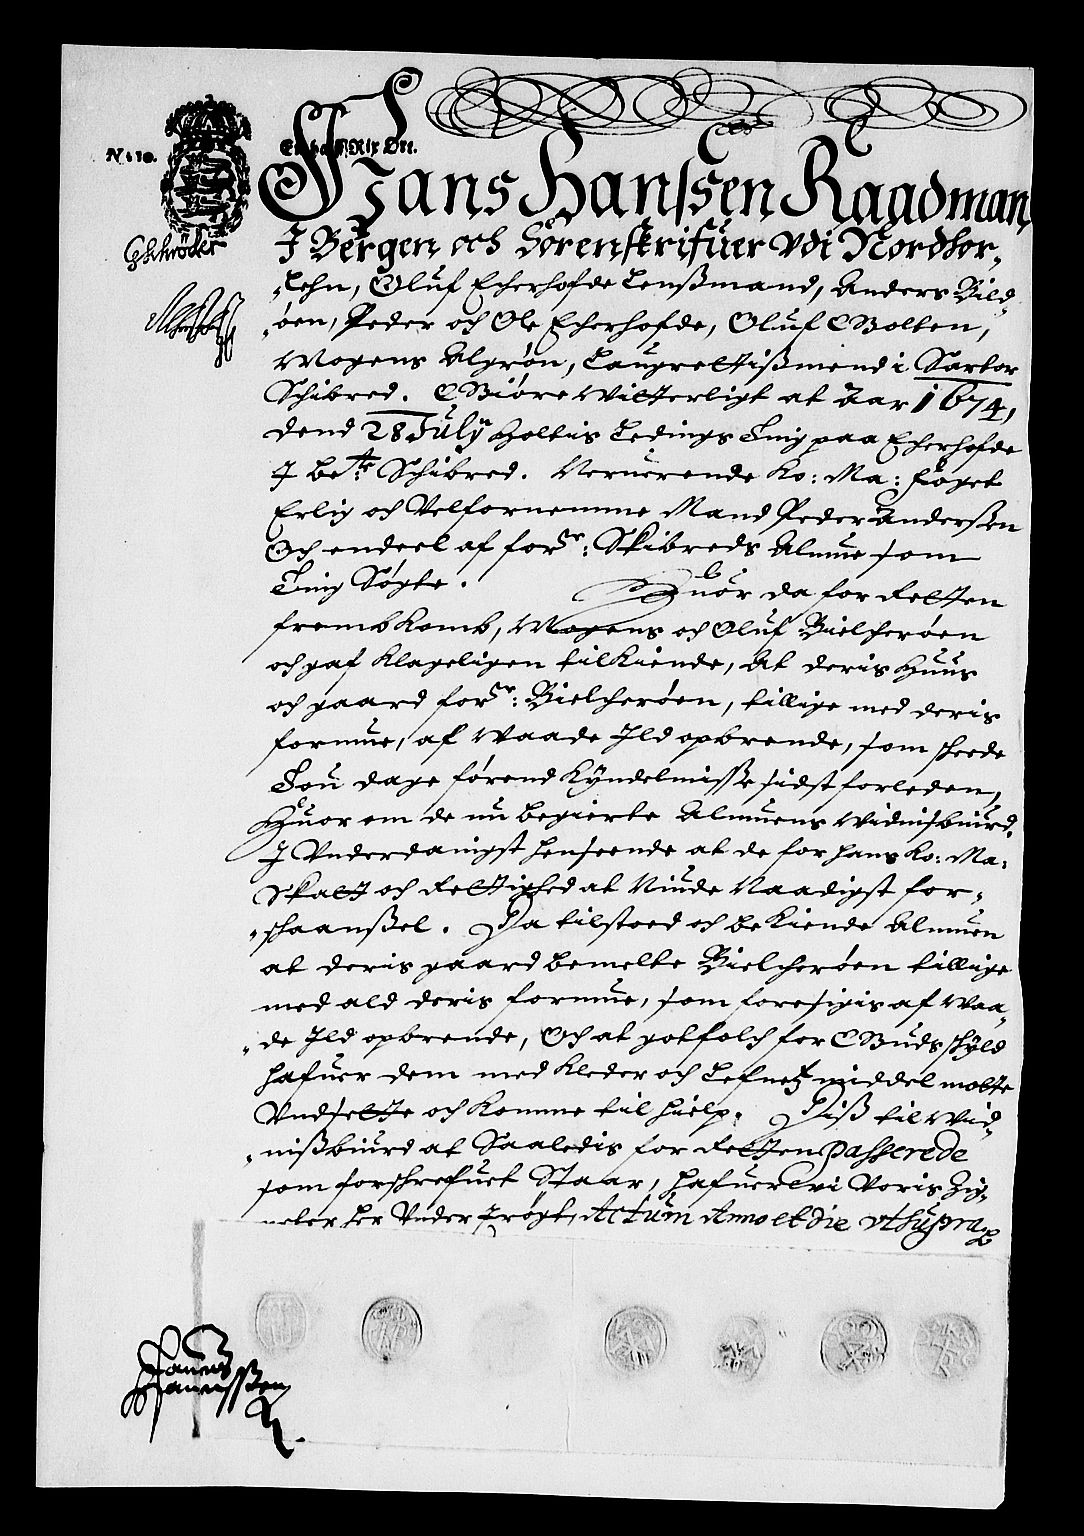 N: 10.
En halff Rix Ort.
GSchröder
Hans Hanssen Raadman
J Bergen och Sorenskrifuer vdi Nordhor-
-Lehn, Oluf Echerhofde Lenßmand, Anders Bild-
-øen, Peder och Ole Echerhofde, Oluf Bolten,
Mogens Algrøn, Laugrettißmend i Sartor
Schibred. Giøre Witterligt at Aar 1674,
dend 28 Julij Holtis Ledings Ting paa Echerhofde
J bete Schibred. Neruerende Ko: Ma: foget
Erlig och Velfornemme Mand Peder Anderßen
Och endeel af forne: Skibreds Almue som
Ting Søgte. Huor da for Retten
fremb Komb, Mogens och Oluf Bielcherøen
och gaf Klageligen tilkiende, At deris Huus
och gaard forne: Bielcherøen, tillige med deris
formue, af Waade Ild opbrende, som skeede
Tou dage førend Kyndelmisse sidst forleden,
Huor om de nu begierte Almuens Widnisbiurd,
J Vnderdanigst henseende at de for hans Ko: Ma:
Skatt och Rettighed at Niude Naadigst for-
-skaanßel. Da tilstoed och bekiende Almuen
at deris gaard bemelte Bielcherøen tillige
med ald deris formue, som foresigis af Waa-
-de Ild opbrende, Och at gotfolch for Guds skyld
hafuer dem med Kleder och Lefnetz middel motte
Vndsette och Komme til hielp. Diß til Wid-
-nißbiurd at Saaledis for Retten passerede
som forschrefuet Staar, hafuer wi Voris Zig-
neter her Vnder trøgt, Actum Anno et die vt supra
Hanns
Hannßen